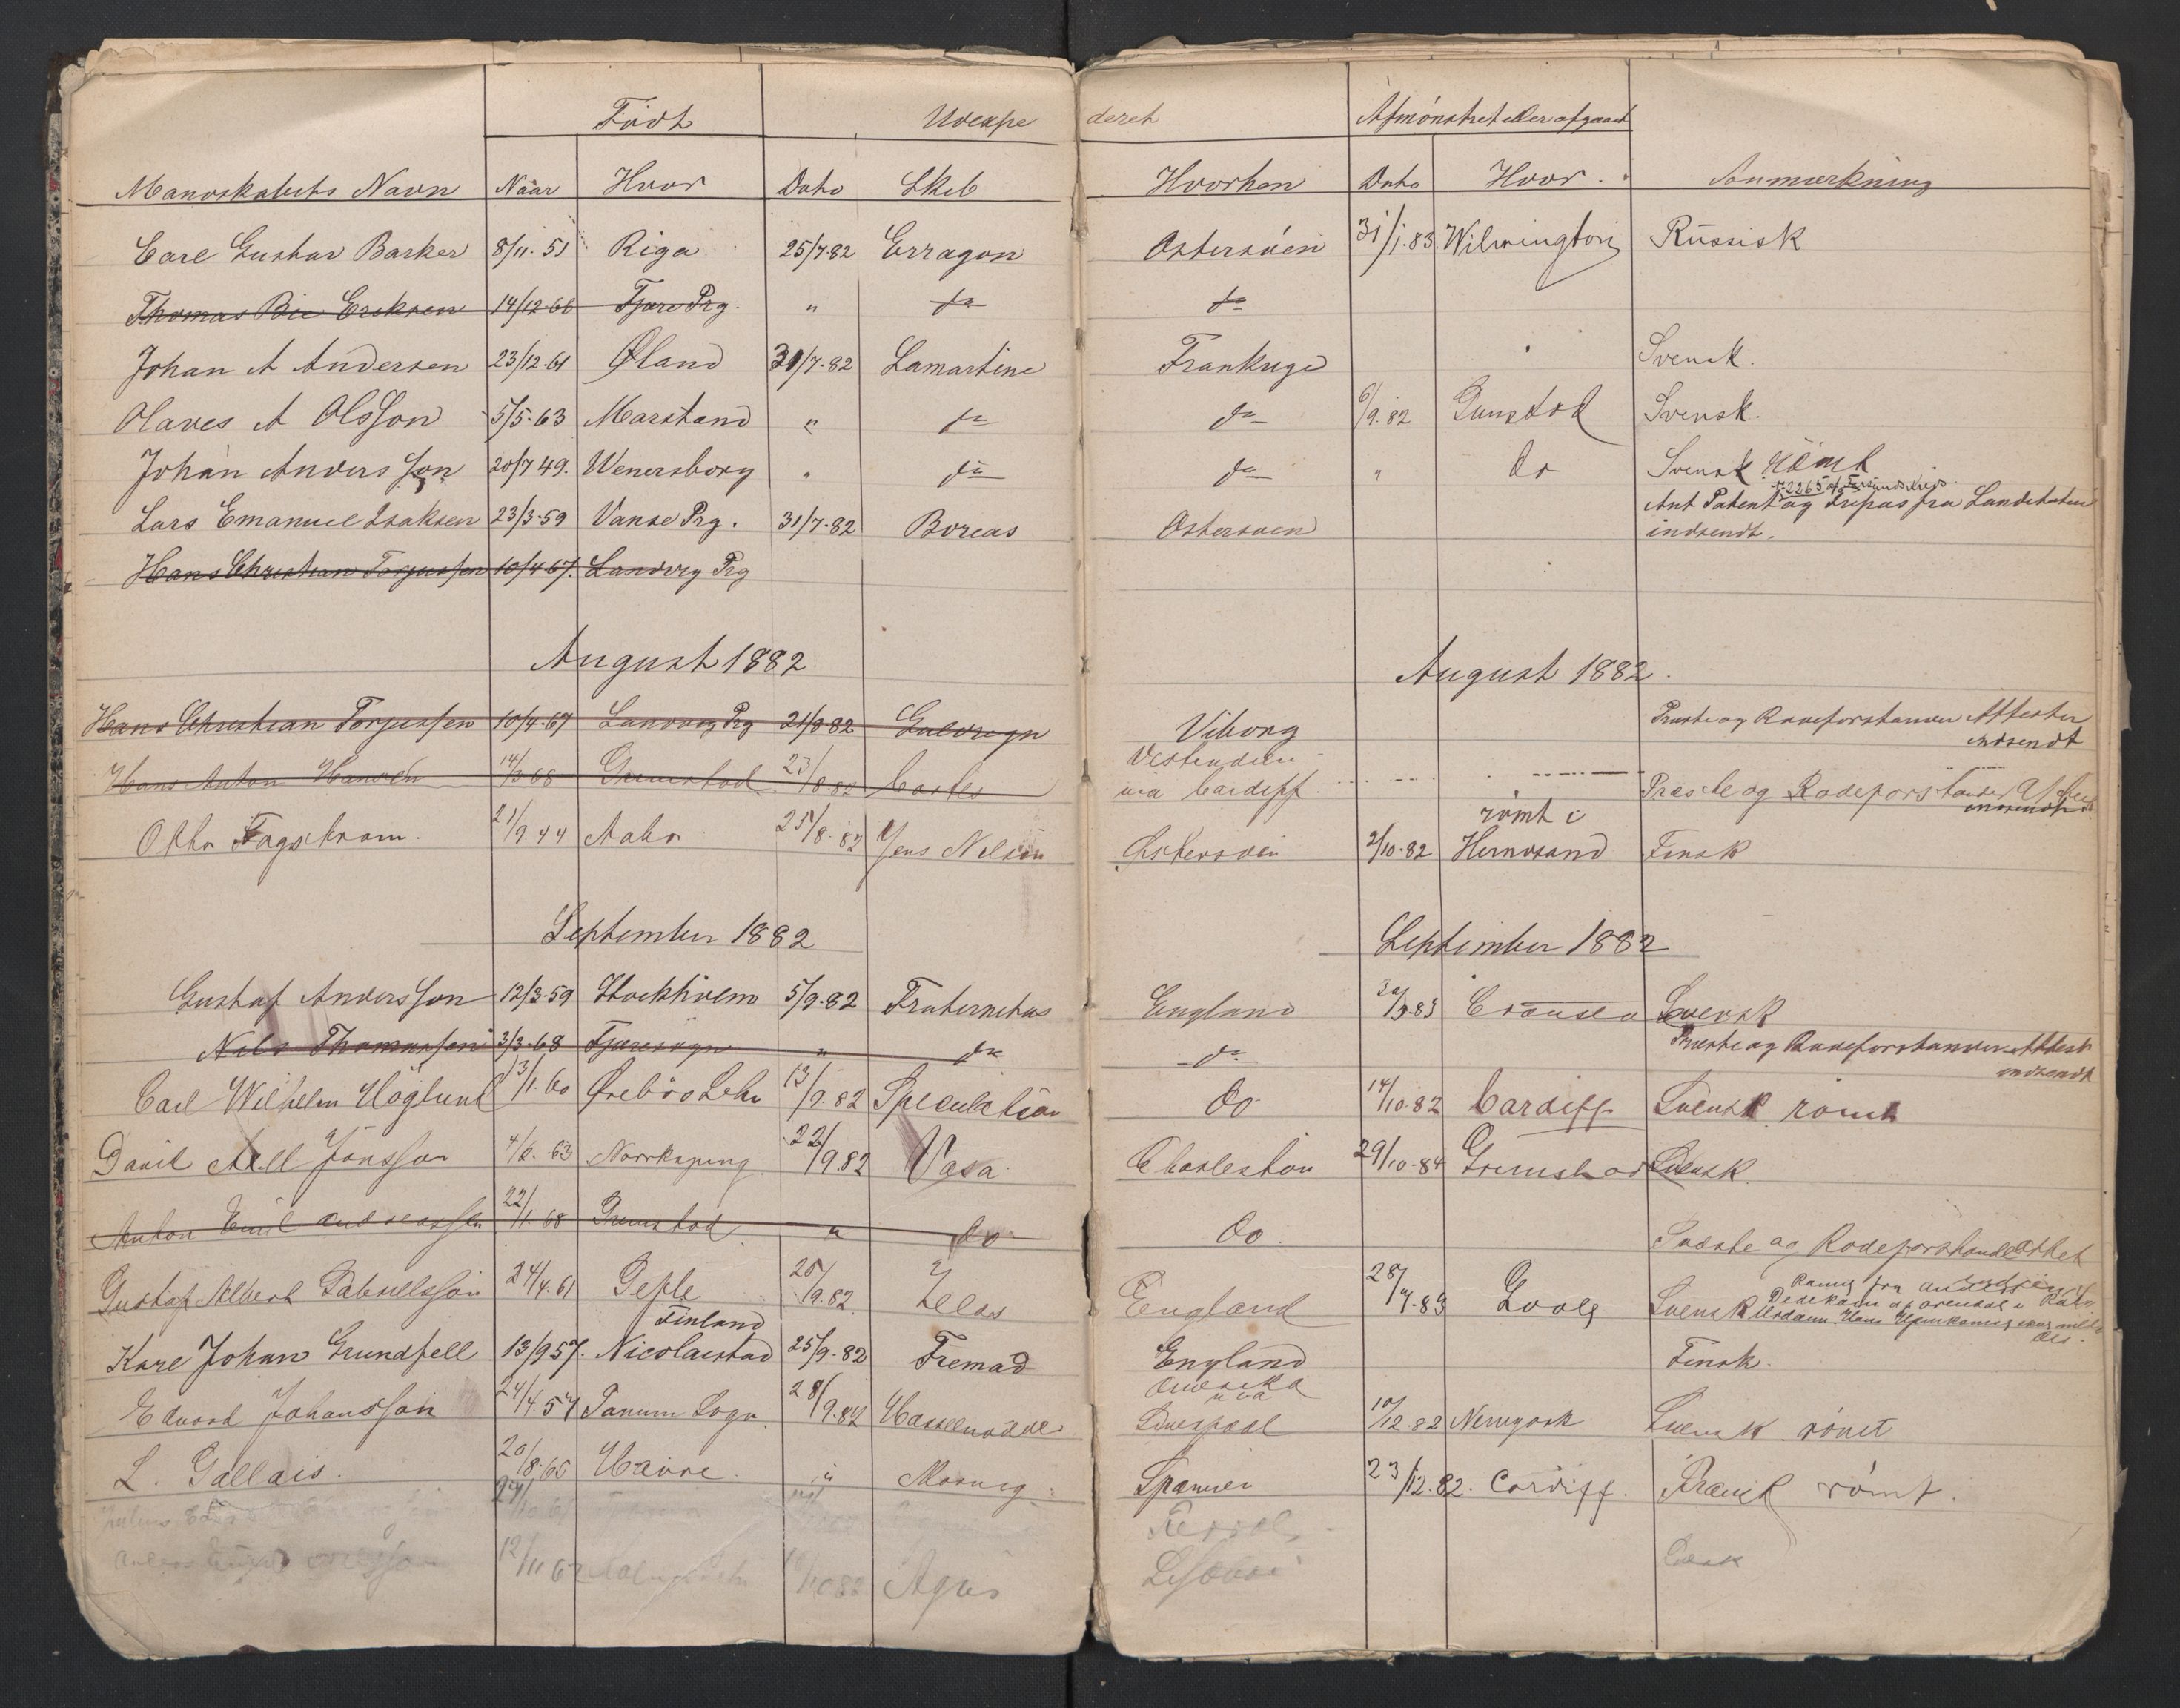 Født Udexpe deret Afmönstret eller afgaaet
Mandskabets Navn Naar Hvor Dato Skib Hvorhen Dato Hvor. Anmærkning
Carl Gustav Barker 8/11.51 Riga 25/7.82 Erragon Østersöen 31/1.83 Wilmington Russisk
Thomas Bie Eriksen 14/12.66 Fjære Prg. " do do
Johan A Andersen 23/12.61 Øland 31/7.82 Lamartine Frankrige Svensk.
Olaves A Olsson 5/5.63 Marstand " do do 6/9.82 Grimstad Svensk.
Johan Andersson 20/7 49. Wenersborg " do do " do Svensk römt
Lars Emanuel Isaksen 23/3.59 Vanse Prg. 31/7.82 Boreas Østersöen Ant Patent og Fripas fra Landetaten
indsendt.
Hans Christian Torjussen 10/4 67. Landvig Prg
August 1882 August 1882.
Hans Christian Torjussen 10/4.67 Landvig Prg 21/8.82 Viborg Preste og Rodeforstander Attester
indsendt
Hans Anton Hansen 14/3 68 Grimstad 23/8.82 Vestindien
via Cardiff. Præste og Rodeforstander Attest
indsendt
Otto Fagerstrom. 21/9 44 Aabo 25/8.82 Jens Nelson Østersöen 2/10.82 römt i
Hernosand Finsk
September 1882 September 1882
Gustaf Andersson 12/3.59 Stockholm 5/9.82 Fraternitas England Svensk
Nils Thomassen 3/3.68 Fjæresogn " do do Preste og Rodeforstander Attest
indsendt
Carl Wilhelm Höglund 13/1.60 Ørebro Lehn 13/9.82 Speculation Do 14/10.82 Cardiff Svensk römt
David Axell Jonsson 4/6.63 Norrkøping 22/9.82 Vasa Charleston 29/10.84 Grimstad Svensk
Anton Emil Andreassen 22/1.68 Grimstad " do Do. Præste og Rodeforstander Attest
Gustaf Albert Gabrielsson 24/4.61 Gefle 25/9.82 Zelas England 28/7.83 Goole Svensk
Karl Johan Grundfell 13/9 57. Finland
Nicolaistad 25/9.82 Fremad England Finsk.
Edvard Johansson 24/4.54 Tanum Sogn. 28/9.82 Hasselnödde America
via
Liverpool 10/12.82 Newyork Svensk römt
L. Gallais. 20/8.65 Havre. " Morning Spanien 23/12.82. Cardiff. Fransk römt.
12/11 62 10/10 82 Agnes Svensk